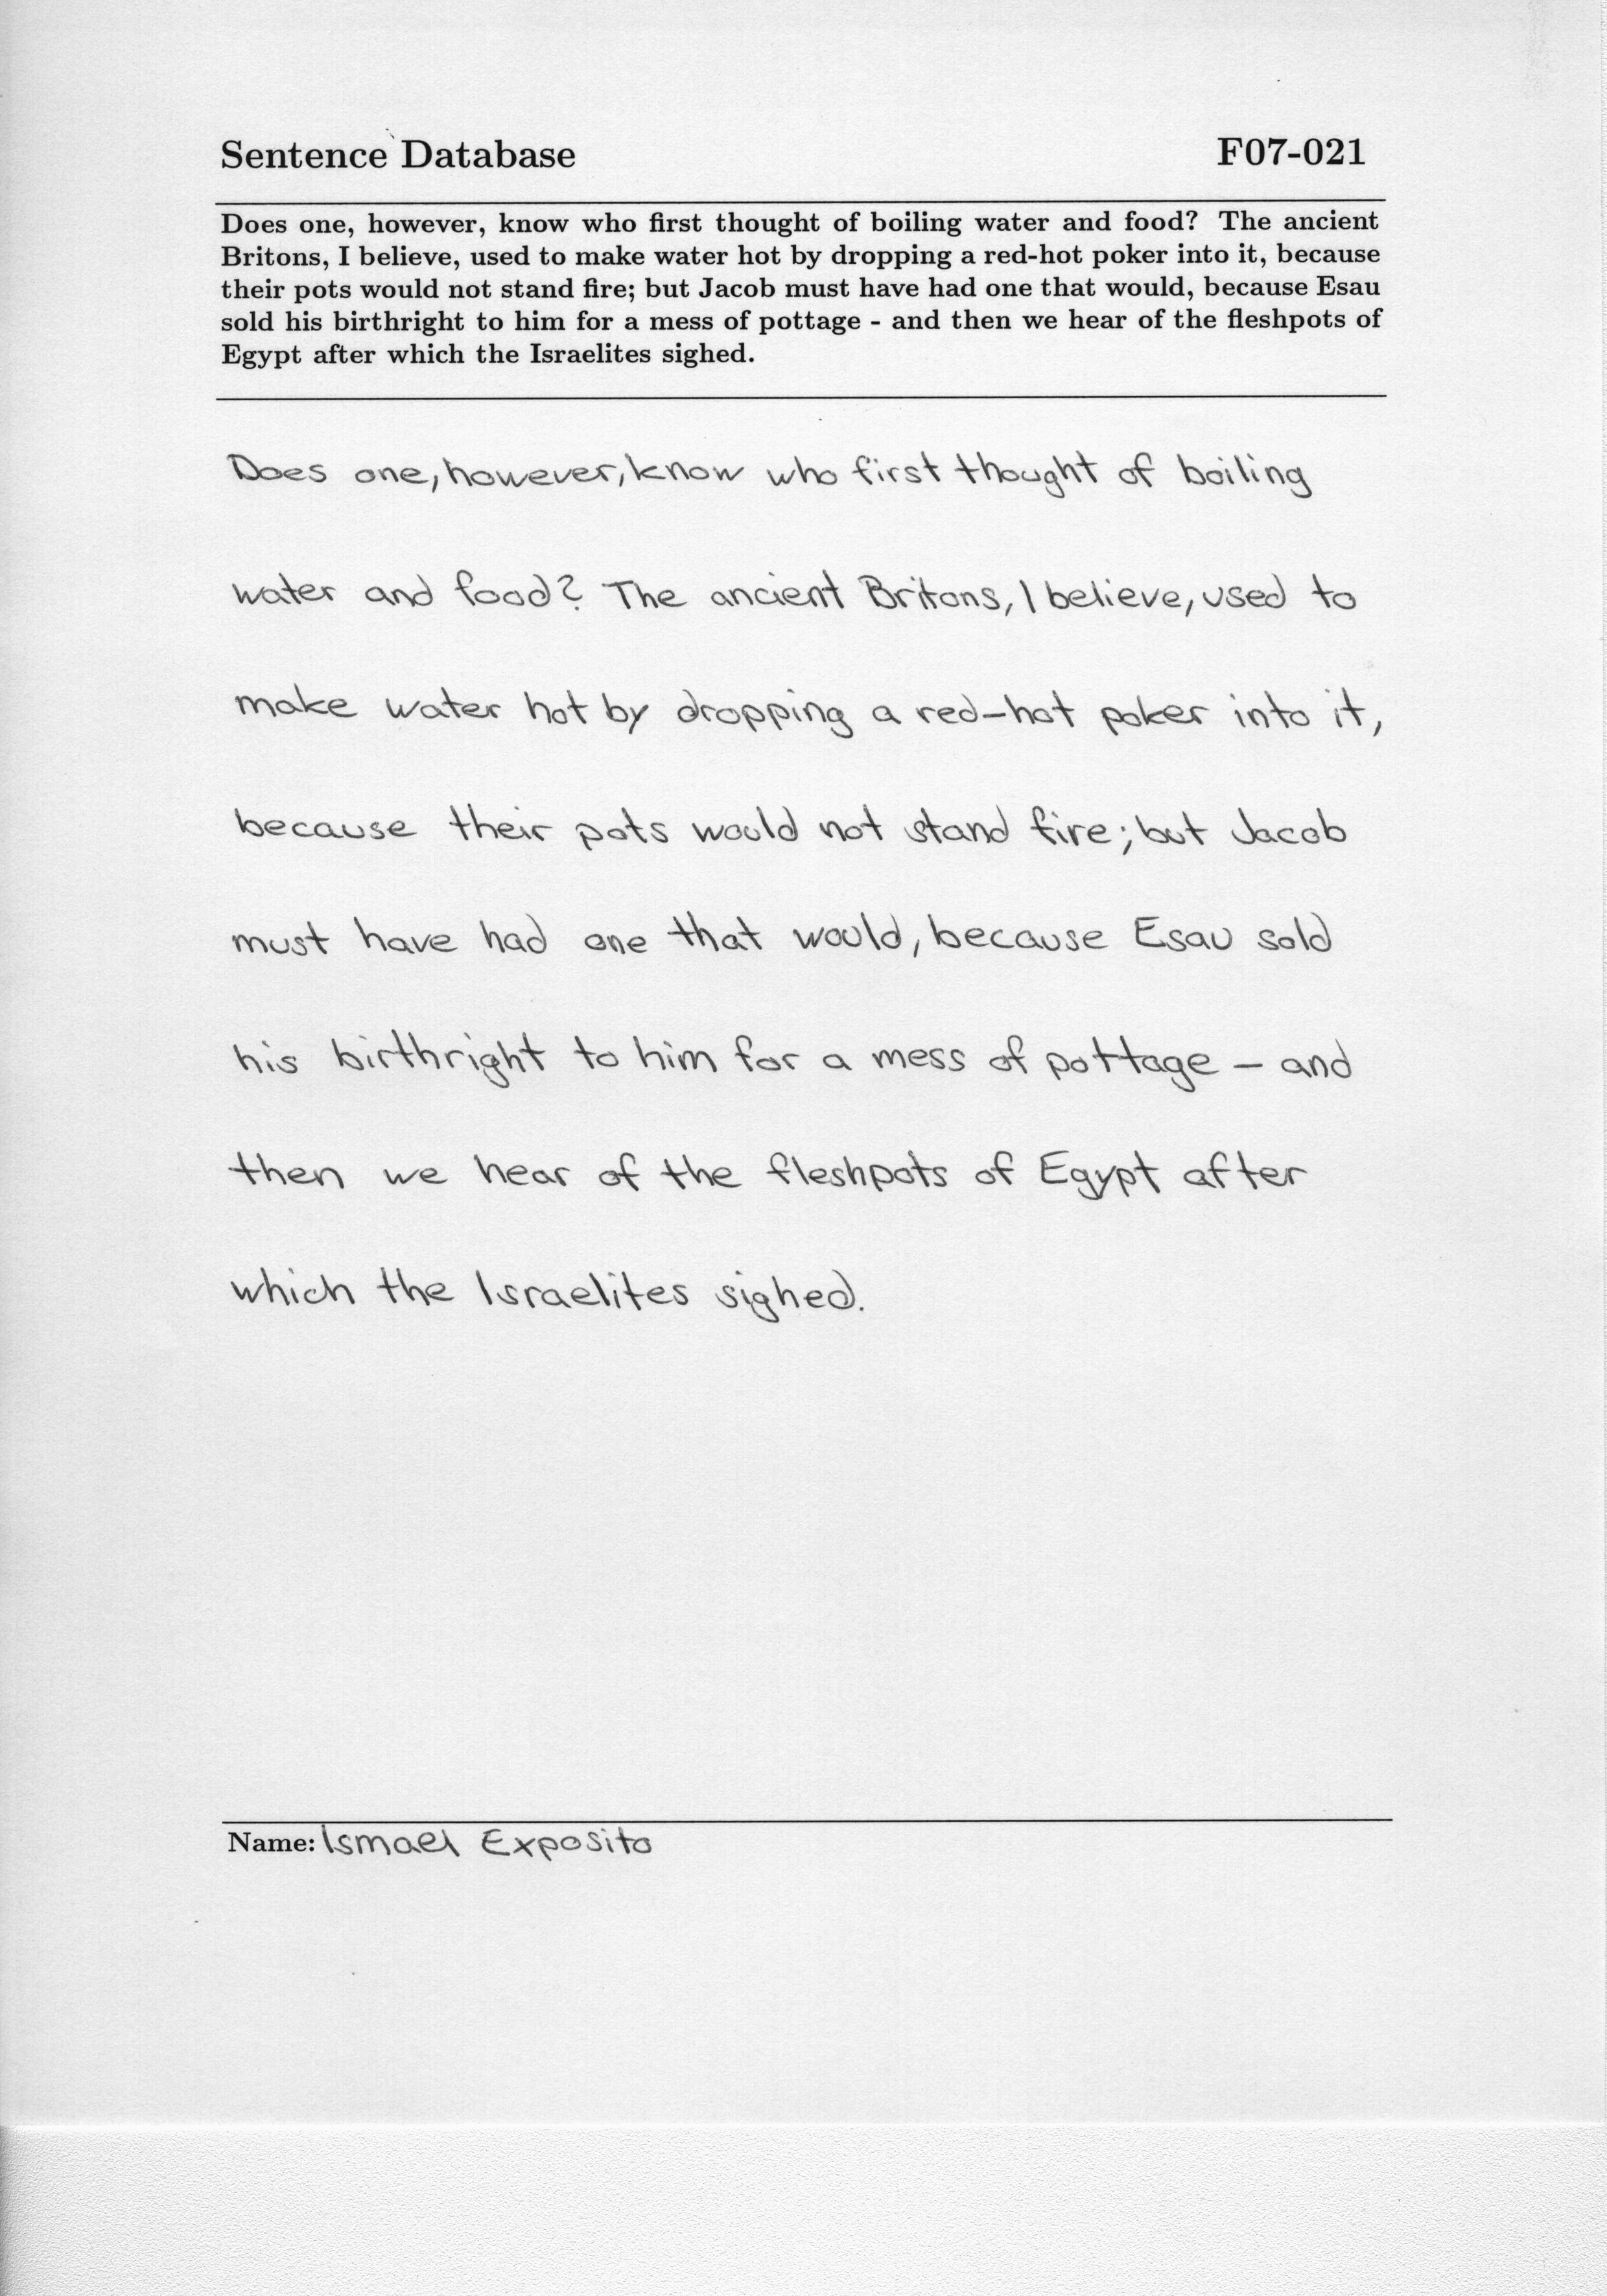 Sentence Database F07-021
Does one, however, know who first thought of boiling water and food? The ancient
Britons, I believe, used to make water hot by dropping a red-hot poker into it, because
their pots would not stand fire; but Jacob must have had one that would, because Esau
sold his birthright to him for a mess of pottage - and then we hear of the fleshpots of
Egypt after which the Israelites sighed.
Does one, however, know who first thought of boiling
water and food? The ancient Britons, I believe, used to
make water hot by dropping a red-hot poker into it,
because their pots would not stand fire; but Jacob
must have had one that would, because Esau sold
his birthright to him for a mess of pottage - and
then we hear of the fleshpots of Egypt after
which the Israelites sighed.
Name: Ismael Exposito